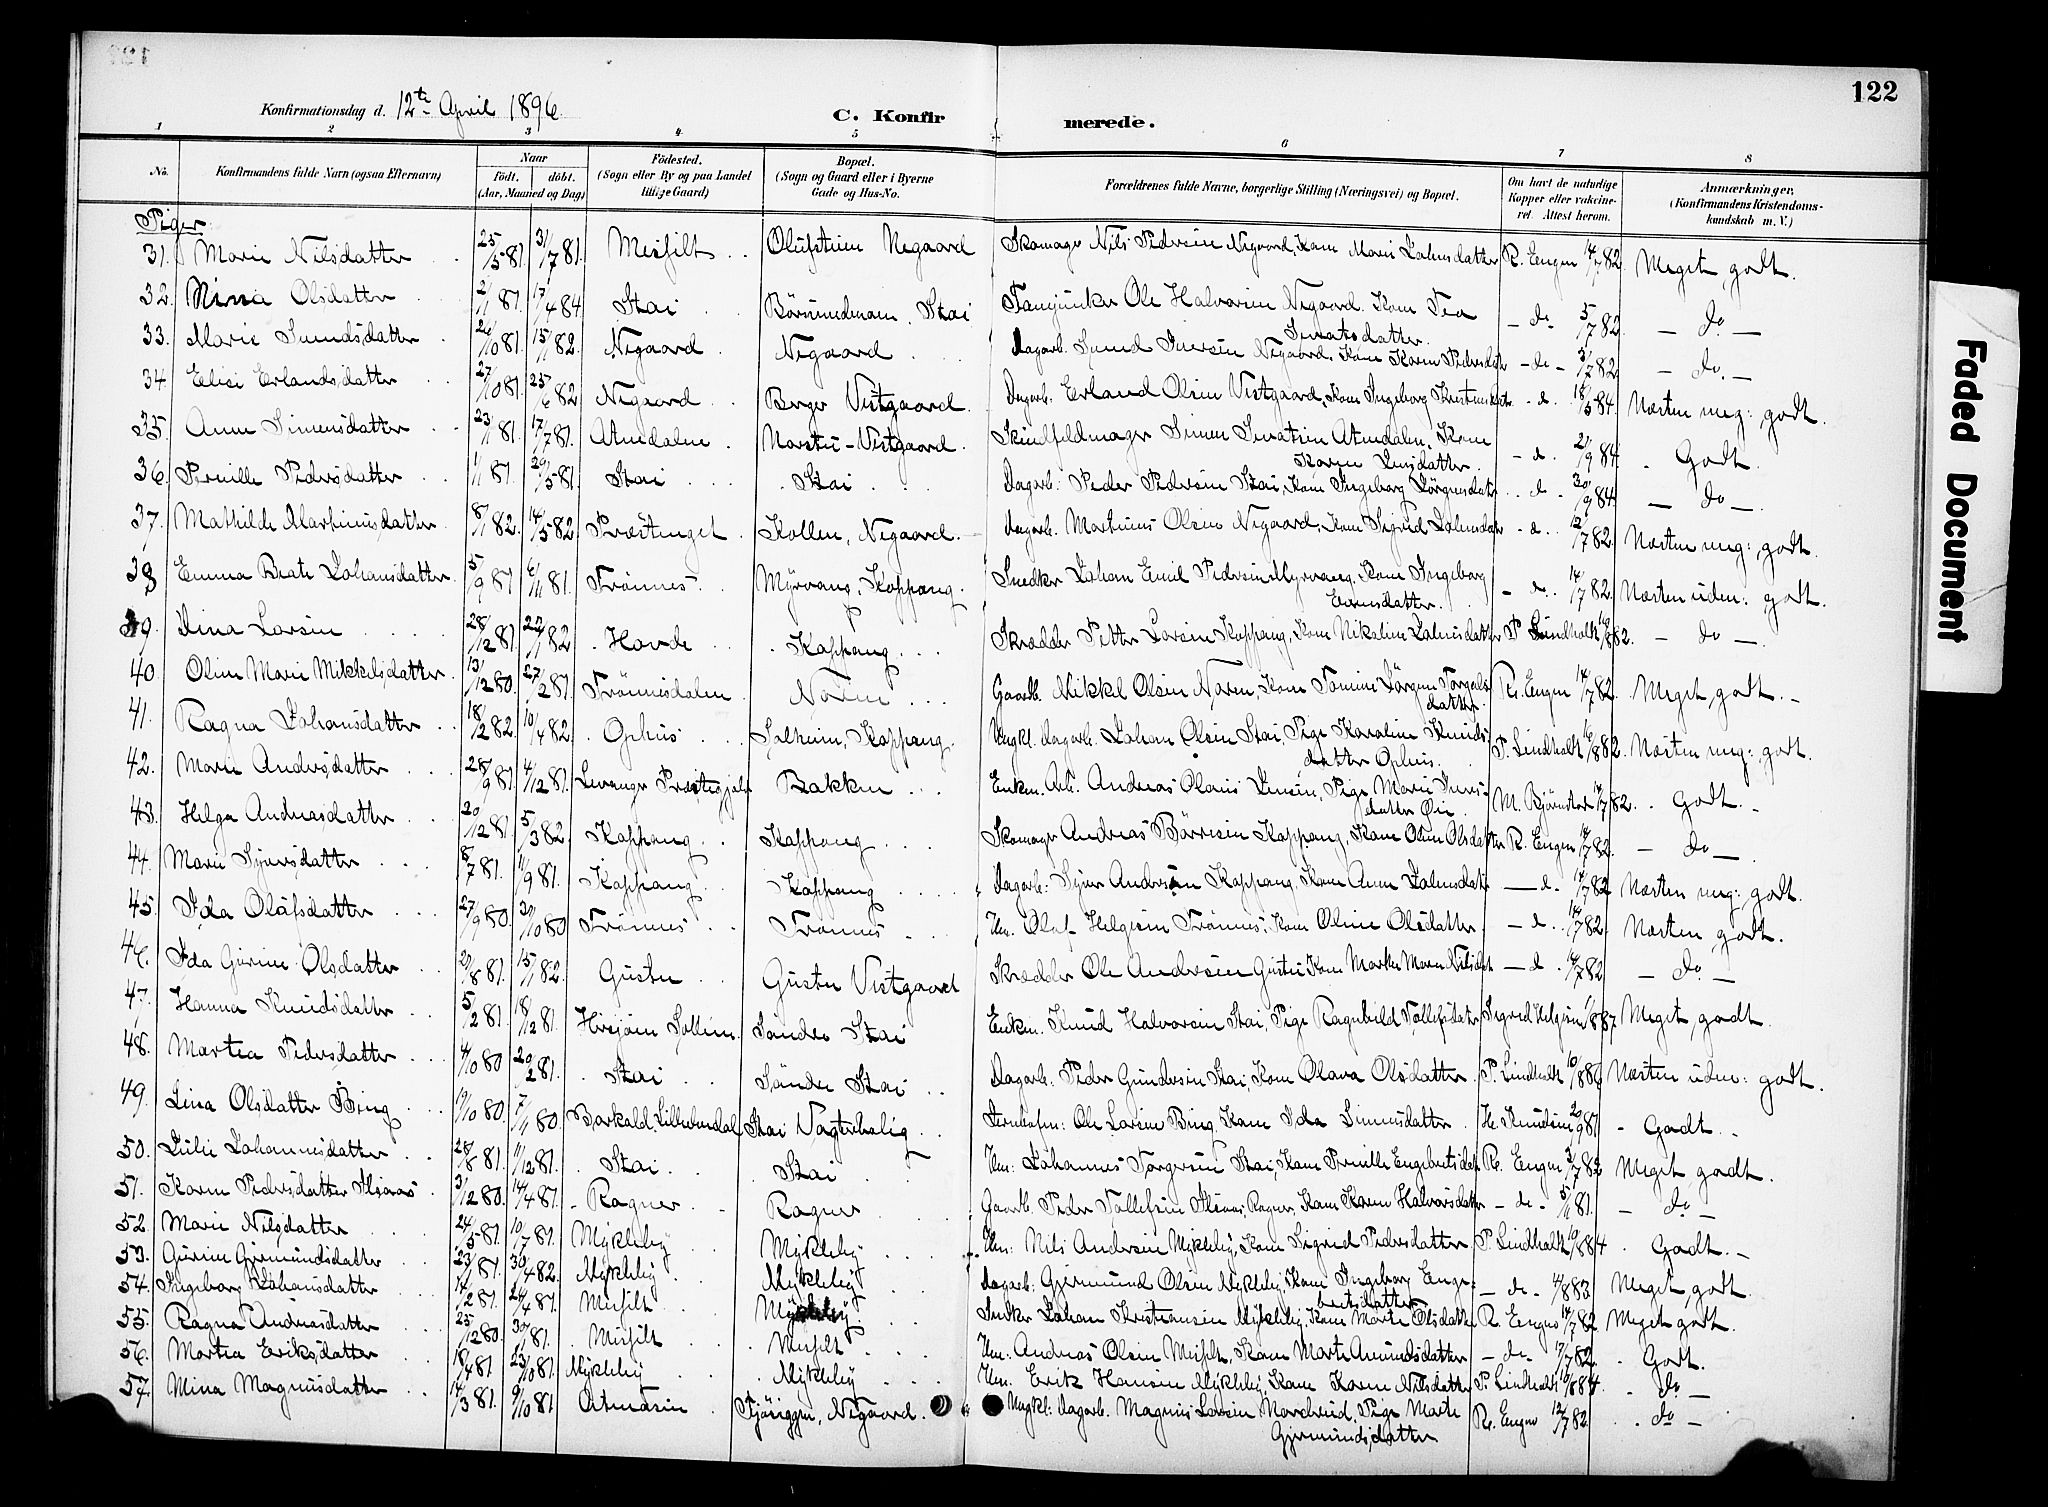 122
Konfirmationsdag d. 12te April 1896.
C. Konfirmerede.
1 2 3 4 5 6 7 8
No. Konfirmandens fulde Navn (ogsaa Efternavn) Naar födt. döbt. (Aar, Maaned og Dag) Födested. (Sogn eller By og paa Landet tillige Gaard) Bopæl. (Sogn og Gaard eller i Byerne Gade og Hus-No. Forældrenes fulde Navne, borgerlige Stilling (Næringsvei) og Bopæl. Om havt de naturlige Kopper eller vakcineret. Attest herom. Anmærkninger, (Konfirmandens Kristendomskundskab m. V.)
Piger
31. Marie Nilsdatter 25/5 81. 31/7 81. Messelt Olufsteim Negaard Skomager Nils Pedersen Negaard, Kone Marie Johnsdatter R. Engen 14/7 82. Meget godt.
32. Olsdatter 2/1 81. 17/4 84 Stai Stai Ole Halvorsen Negaard. Kone Tea Sivertsdatter. - do - 5/7 82. - do -
33. Marie Svendsdatter 26/10 81. 15/1 82. Negaard Negaard Dagarb. Svend Iversen Negaard, Kone Karen Pedersdatr - do - 3/7 82. - do. -
34. Elise Erlandsdatter 27/10 81. 25/6 82 Negaard Berger Vestgaard Dagarb. Erland Olsen Vestgaard, Kone Ingeborg Kristensdatr. - d. 18/5 84. Næsten meg: godt.
35. Anne Simensdatter 23/1 81. 17/7 81. Atnedalen Norstu-Vestgaard Skindfeldmager Simen Sivertsen Atnedalen, Kone Karen Jensdatter. - d. 21/9 84. Godt.
36. Pernille Pedersdatter 1/1 81. 29/5 81. Stai Stai Dagarb: Peder Pedersen Stai, Kone Ingeborg Jörgensdatr - d. - 30/9 84. - do -
37. Mathilde Martinusdatter 8/1 82. 14/5 82 Præstenget Kollen, Negaard. Dagarb. Martinus Olsen Negaard, Kone Sigrid Johnsdatr - d. 12/7 82. Næsten meg: godt.
38 Emma Beate Johansdatter. 5/9 81 6/11 81. Trönnes Myrvang, Koppang. Snedker Johan Emil Pedersen Myrvang, Kone Ingeborg Evensdatter. - d. 14/7 82. Næsten uden: godt.
39. Dina Larsen 28/12 81. 22/1 82 Horde Koppang Skrædder Petter Larsen Koppang, Kone Nikoline Johnsdatter P. Lindholt 16/8 82. - do -
40. Oline Marie Mikkelsdatter. 13/12 80. 27/2 81. Trönnesdalen Noren Gaardb. Mikkel Olsen Noren, Kone Tomine Jörgine Torgalsdatter. R. Engen 14/7 82. Meget godt. -
41. Ragna Johansdatter 18/2 82. 10/4 82. Ophus Solheim, Koppang. Ungkl. dagarb. Johan Olsen Stai, Pige Karoline Knudsdatter Ophus. P. Lindholt 16/8 82. Næsten meg: godt.
42. Marie Andersdatter 28/9 81 4/12 81. Levanger Præstegjeld Bakken Enkem. Arb. Andreas Olaus Jensen, Pige Marie Iversdatter Öie. M. Björnstad 14/7 82. Godt. -
43. Helga Andreasdatter 20/12 81. 5/3 82. Koppang Koppang Skomager Andreas Börresen Koppang, Kone Oline Olsdatter R. Engen 14/7 82. - do -
44. Marie Syversdatter 8/7 81. 11/9 81. Koppang Koppang Dagarb: Syver Andersen Koppang, Kone Anne Johnsdatr - d. 14/7 82 Næsten meg: godt.
45. Ida Olafsdatter 27/9 80. 31/10 80 Trönnes Trönnes Hm. Olaf Helgesen Trönnes, Kone Oline Olsdatter - d. 14/7 82. Næsten godt.
46. Ida Gurine Olsdatter 29/8 81. 15/1 82. Gustu Gustu Vestgaard Skrædder Ole Andersen Gustu Kone Marthe Marie Nilsdat - d. 14/7 82 - do -
47. Hanna Knudsdatter 5/2 81. 18/12 81. Hirsjöen Sollien Söndre Stai Enkem. Knud Halvorsen Stai, Pige Ragnhild Tollefsdatr Sigrid Helgesen 1/8 87 Meget godt.
48. Martea Pedersdatter 4/10 80 20/2 81. Stai Söndre Stai Dagarb. Peder Gundersen Stai, Kone Olava Olsdatter. P. Lindholt 10/8 86 Næsten uden: godt.
49. Lina Olsdatter Bing 19/10 80. 7/11 80. Barkald, Lilleelvedal Stai Vogterbolig Jernbafm: Ole Larsen Bing Kone Ida Simensdatter. H. Knudsen 20/9 81 - Godt. -
50. Julie Johannesdatter 28/8 81. 11/12 81. Stai Stai Hm: Johannes Torgersen Stai, Kone Pernille Engebretsdat R. Engen 3/7 83 Meget godt.
51. Karen Pedersdatter Ilsaas 3/12 80. 14/4 81. Ragner Ragner Gaardb. Peder Tollefsen Ilsaas, Ragner, Kone Karen Halvorsdatter - do - 5/11 81. - do -
52. Marie Nilsdatter 24/5 81. 10/7 81. Mykleby Mykleby Hm: Nils Andersen Mykleby, Kone Sigrid Pedersdatter P. Lindholt 10/8 84 Godt. -
53. Gurine Gjermundsdatter 23/11 81. 30/4 82. Mykleby Mykleby Dagarb: Gjermund Olsen Mykleby, Kone Ingeborg Engebretsdatter - do - 4/8 83. Meget godt.
54. Ingeborg Johansdatter 14/2 81. 24/4 81. Messelt Mykleby Snekr Johan Kristiansen Mykleby, Kone Marte Olsdatter R. Engen 14/7 82 Meget godt.
55. Ragna Andreasdatter 25/12 80. 30/1 81. Messelt Messelt Hm: Andreas Olsen Messelt, Kone Marte Amundsdatter - do - 17/7 82. Godt.
56. Martea Eriksdatter 18/4 81 23/10 81. Mykleby Mykleby Hm. Erik Hansen Mykleby, Kone Karen Nilsdatter P. Lindholt 10/8 84. - do -
57. Mina Magnusdatter 14/3 81. 9/10 81 Atnosen Negaard. Ungkl: dagarb. Magnus Larsen Pige Marte Gjermundsdatter R. Engen 12/7 82. - do -
Faded Document